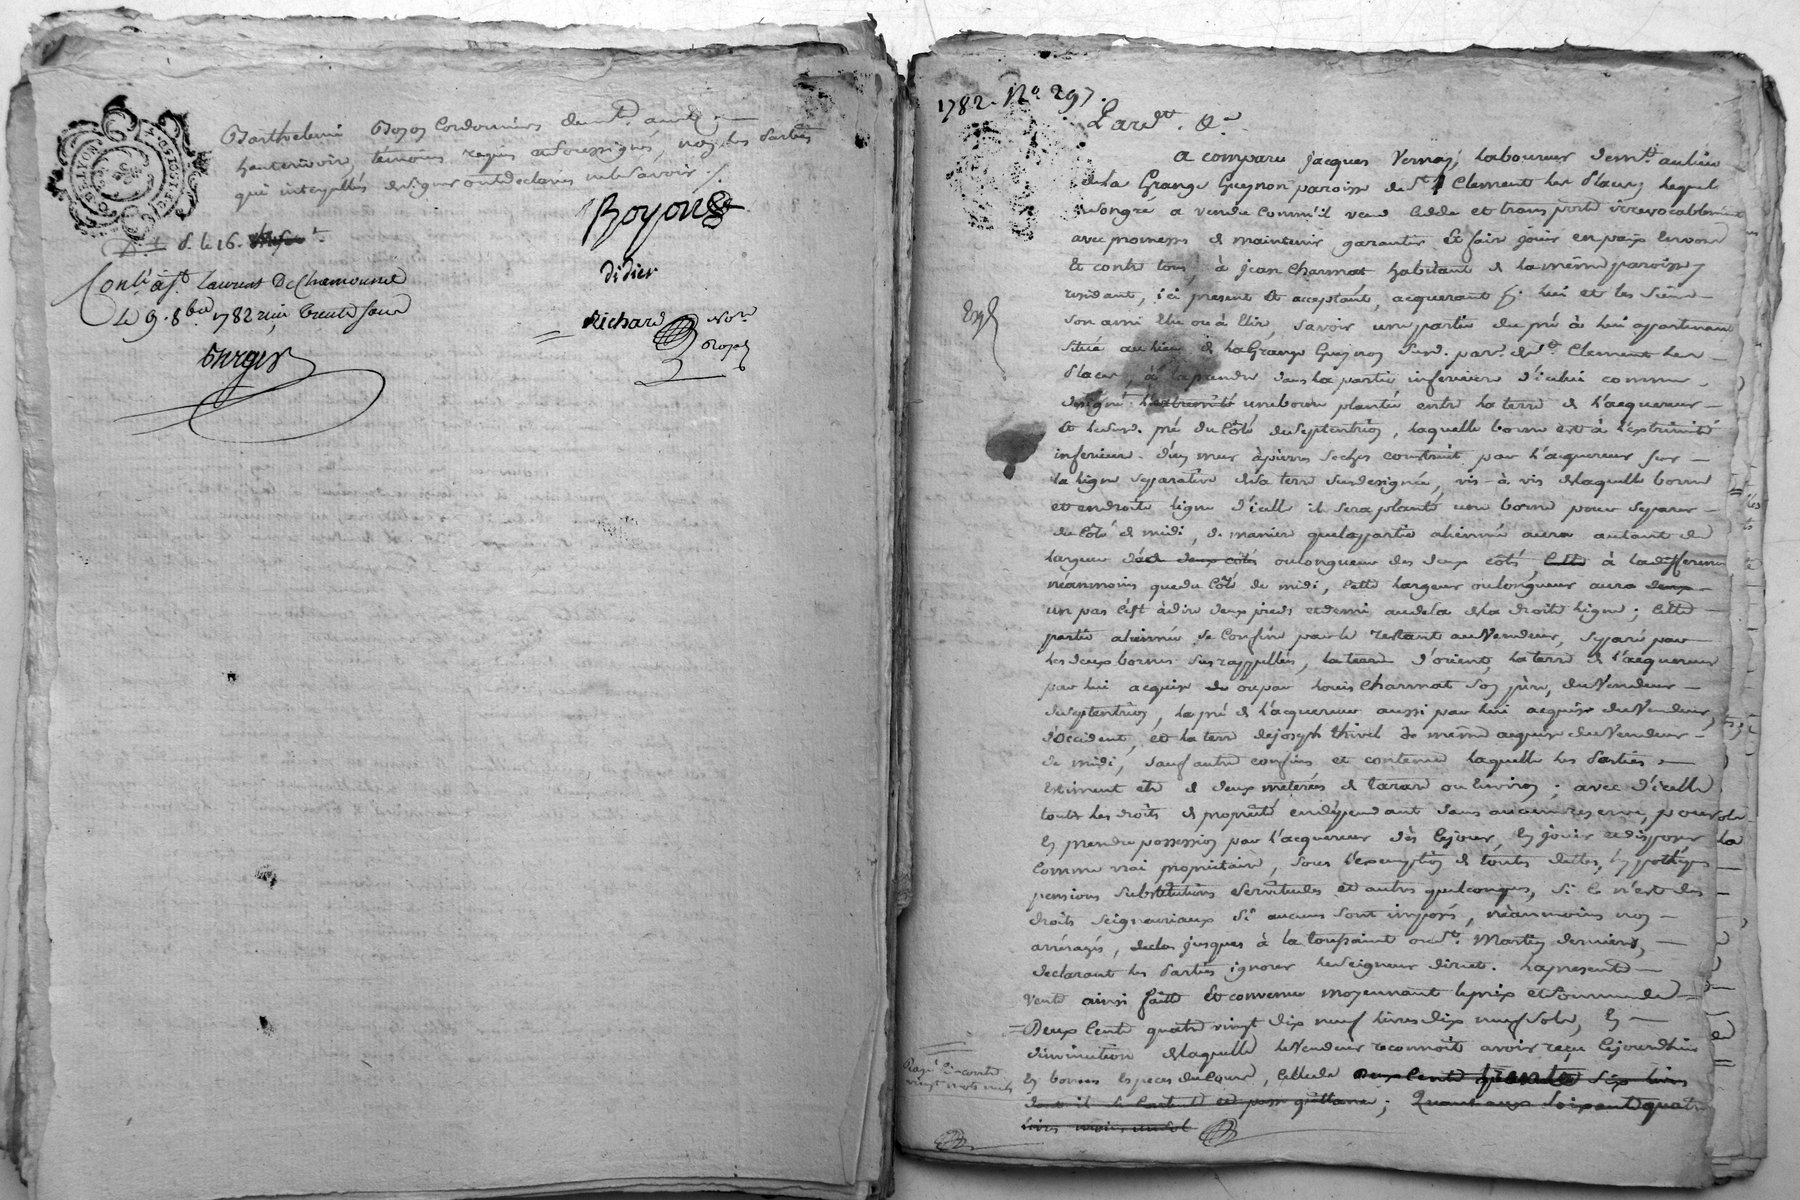 Barthelemi Boyon Cordonniers dem.t aud.
hauterivoire, témoins requis et soussignés, non les Parties
qui interpellés de signer ont declarés ne le savoir ./.
Boyon
didier
Richard No.re
Royal
d. le 16.
Conl. à St. Laurent De Chamousset
Le 9. 8bre 1782 reçu trente sous
1782. N.o 297.
Pard.t &.a
a comparu Jacques Vernay, laboureur demt. au lieu
de la Grange Gueynon paroisse de St. Clement les Places, lequel
de son gré a vendu comm'il vend cedde et transporte irrevocablement
avec promesse de maintenir garantir et fair jouir en paix envers
Et contre tous, à jean Charmat habitant de la même paroisse y
residant, ici present et acceptant, acquerant p. lui et les siens
son ami elu ou à elir, savoir une partie du pré à lui appartenant
situé au lieu de la Grange Gueynon susd. par. de St. Clement les
Places, à la prendre dans la partie inferieure d'icelui comme
designé l'extremité une borne plantée entre la terre de l'acquereur
et le susd. pré du côté du Septentrion, laquelle borne est à l'extrémité
inferieure d'un mur à pierres seches construit par l'acquereur sur
la ligne separative de la terre susdesignée, vis-à-vis de laquelle borne
et en droite ligne d'icelle il sera planté une borne pour separer
du côté de midi, de maniere que la partie alienée aura autant de
largeur des deux cotés ou longueur des deux cotés, cette à la difference
néanmoins que du côté de midi, cette largeur ou longueur aura deux
un pas c'est à dire deux pieds et demi audela de la droite ligne; cette
partie alienée se confine par le restant au Vendeur, separé par
les deux bornes sus rappellées, la terre d'orient, la terre de l'acquereur
par lui acquise de ou par Louis Charmat son père, du Vendeur
Septentrion, le pré de l'acquereur aussi par lui acquis du Vendeur,
d'occident, et la terre de joseph thivel de même acquise du Vendeur
de midi, sauf autre confins et contenue laquelle les Parties
Estiment etre de deux meterées de tarare ou Environ; avec d'icelle
touts les droits de propriété en dépendant sans aucune reserve, pour
En prendre possession par l'acquereur dès cejour, En jouir et disposer
Comme vrai proprietaire, sous l'exemption de toutes dettes, hypothèques
pensions substitutions servitudes et autres quelconques, si ce n'est des
droits seigneuriaux si aucuns sont imposés, néanmoins non
arréragés, declos jusques à la toussaint ou St. Martin derniers,
declarant les Parties ignorer le Seigneur direct. La presente
Vente ainsi faitte Et convenue moyennant le prix et somme de
Deux Cent quatre vingt dix neuf livres dix neuf sols, En
diminution de laquelle le Vendeur reconnoît avoir reçu cejourdhui
En bonnes Especes du Cours, celle de deux Cent trente six livres
dont il se contente et passe quittance; Quant aux soixante quatre
livres moins un sol
Rayé ci-contre
vingt mots nuls